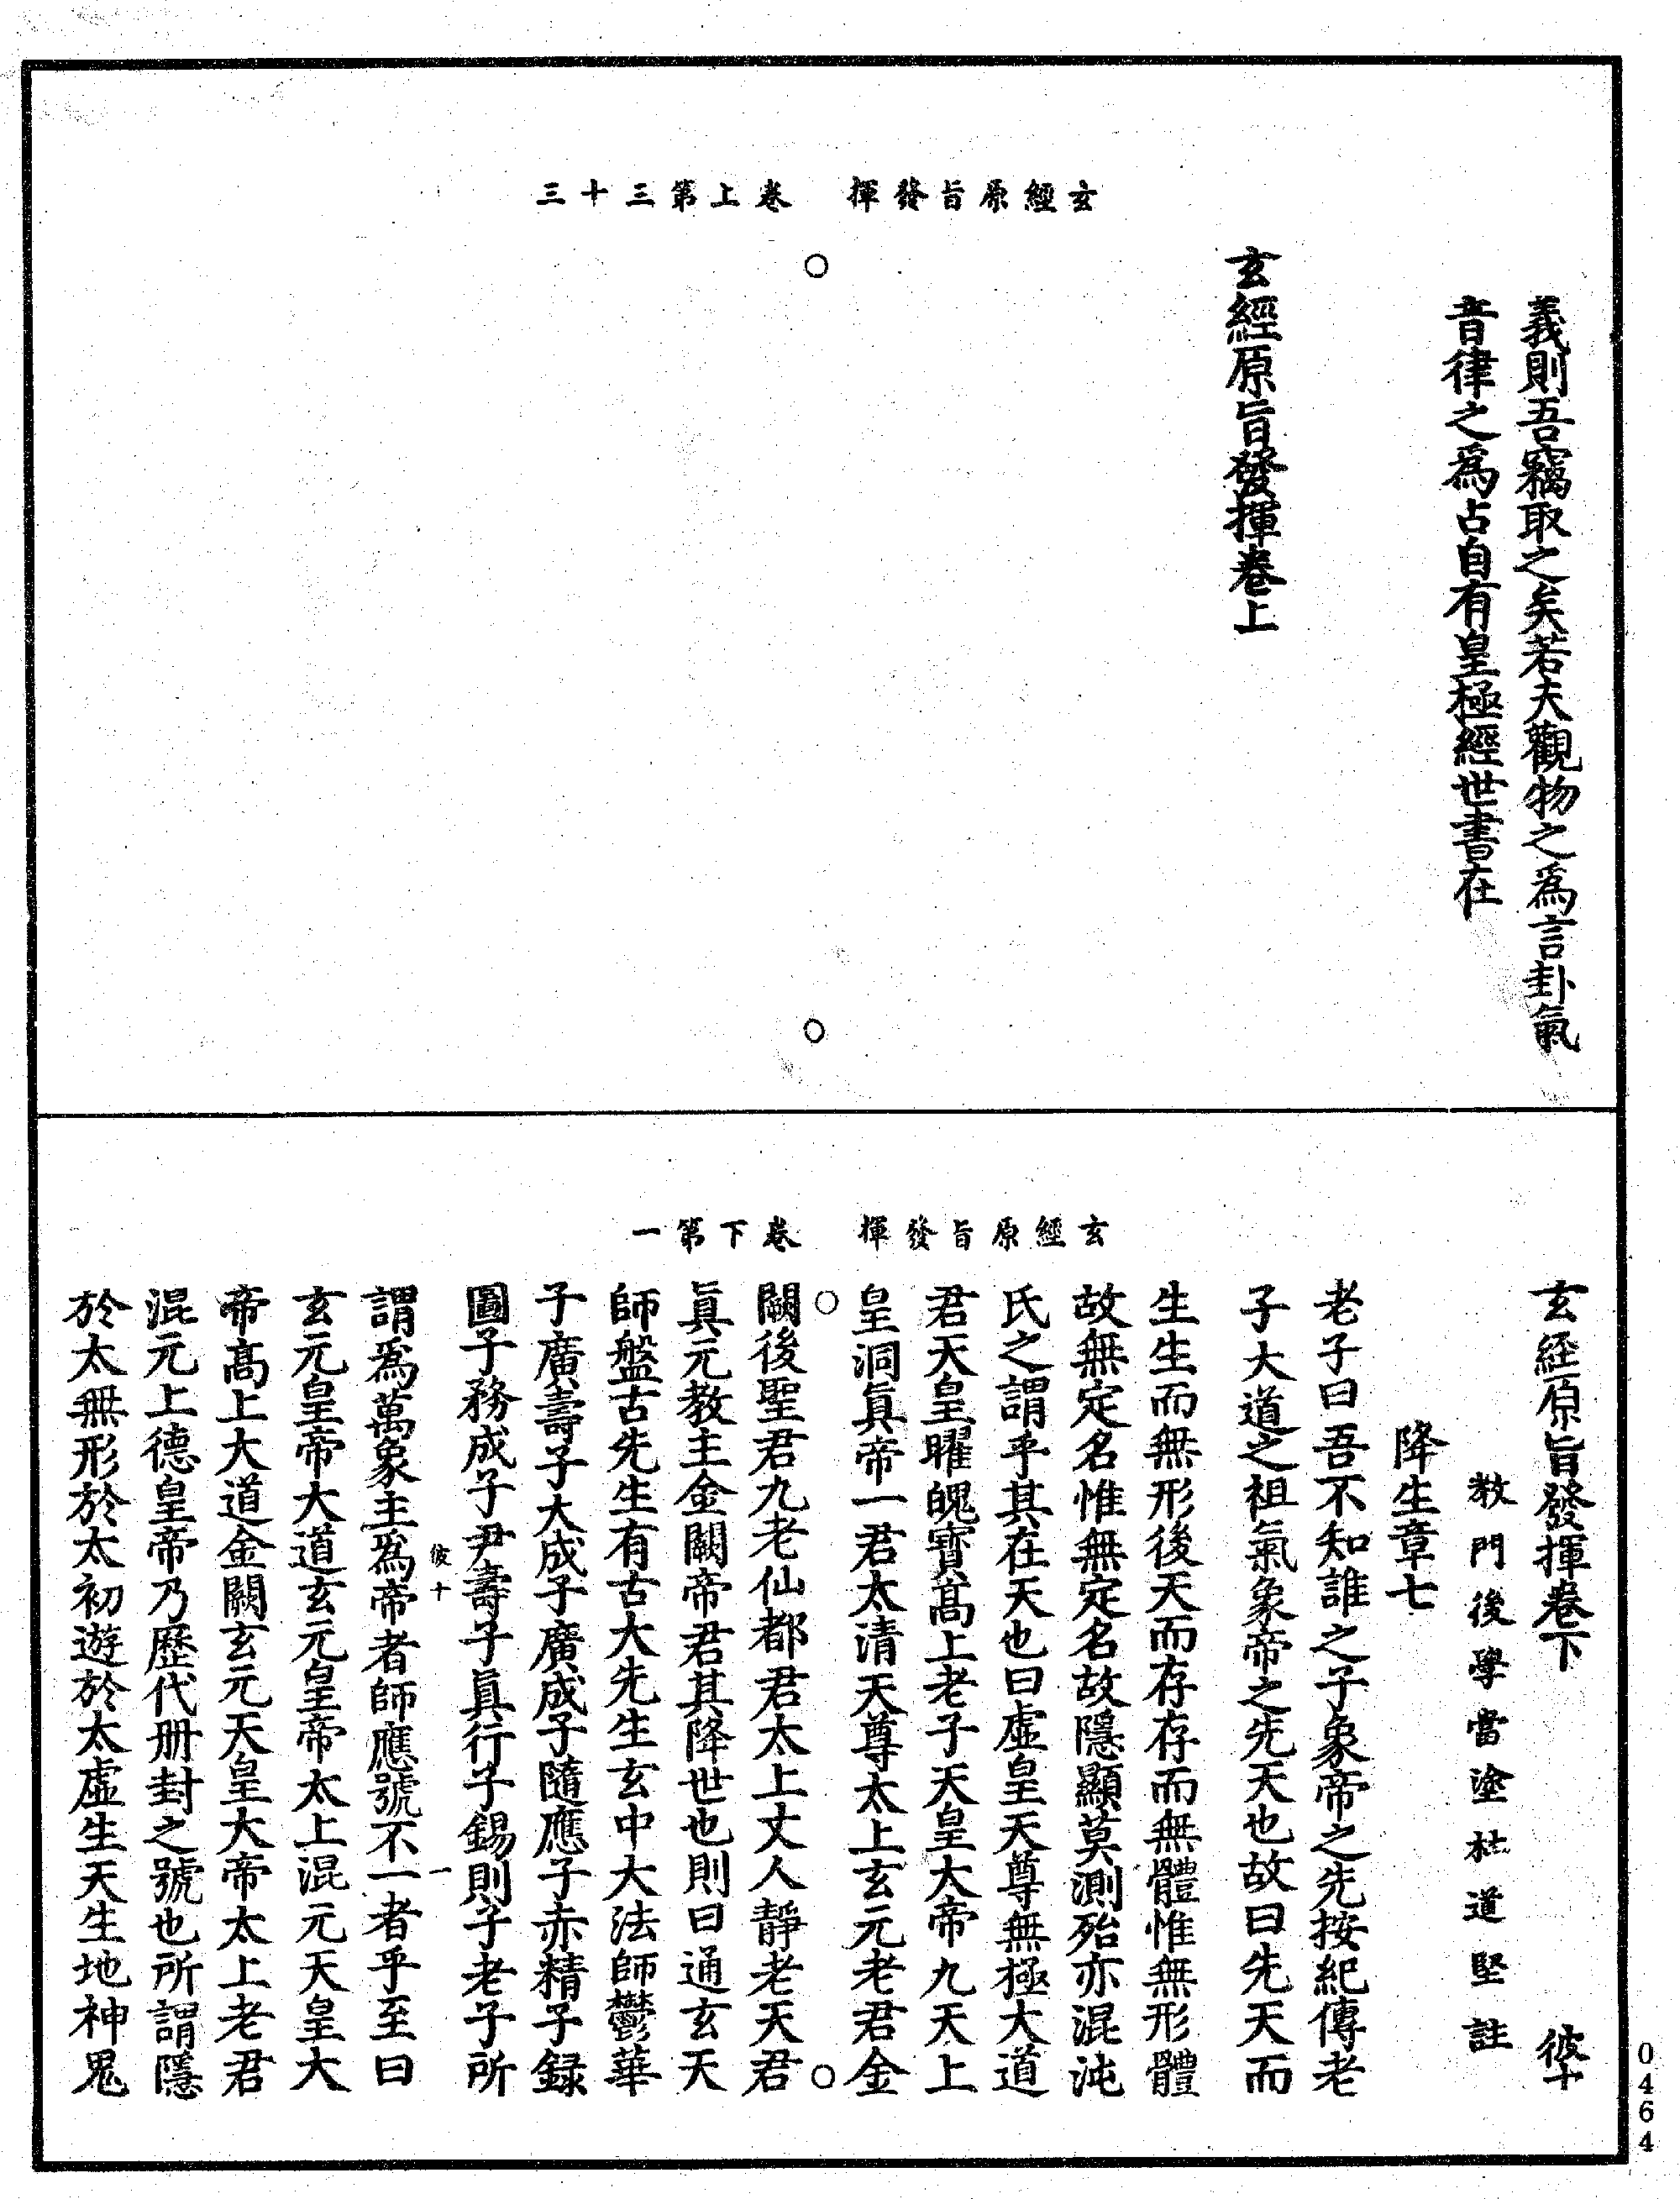 玄經原旨發揮　卷上第三十三
義則吾竊取之矣若夫觀物之爲言卦氣
音律之爲占自有皇極經世書在
玄經原旨發揮卷上
玄經原旨發揮　卷下第一
玄経原旨發揮卷下　彼十
教門後學當塗杜道堅註
降生章七
老子曰吾不知誰之子象帝之先按紀傳老
子大道之祖氣象帝之先天也故曰先天而
生生而無形後天而存存而無體惟無形體
故無定名惟無定名故隱顯莫測殆亦混沌
氏之謂乎其在天也曰虛皇天尊無極大道
君天皇曜魄寶髙上老子天皇大帝九天上
皇洞眞帝一君太清天尊太上玄元老君金
闕後聖君九老仙都君太上丈人靜老天君
眞元教主金闕帝君其降世也則曰通玄天
師盤古先生有古大先生玄中大法師鬱華
子廣壽子大成子廣成子隨應子赤精子録
圖子務成子尹壽子眞行子錫則子老子所
彼十　一
謂爲萬象主爲帝者師應號不一者乎至曰
玄元皇帝大道玄元皇帝太上混元天皇大
帝髙上大道金闕玄元天皇大帝太上老君
混元上德皇帝乃歷代册封之號也所謂隱
於太無形於太初遊於太虛生天生地神鬼
0464